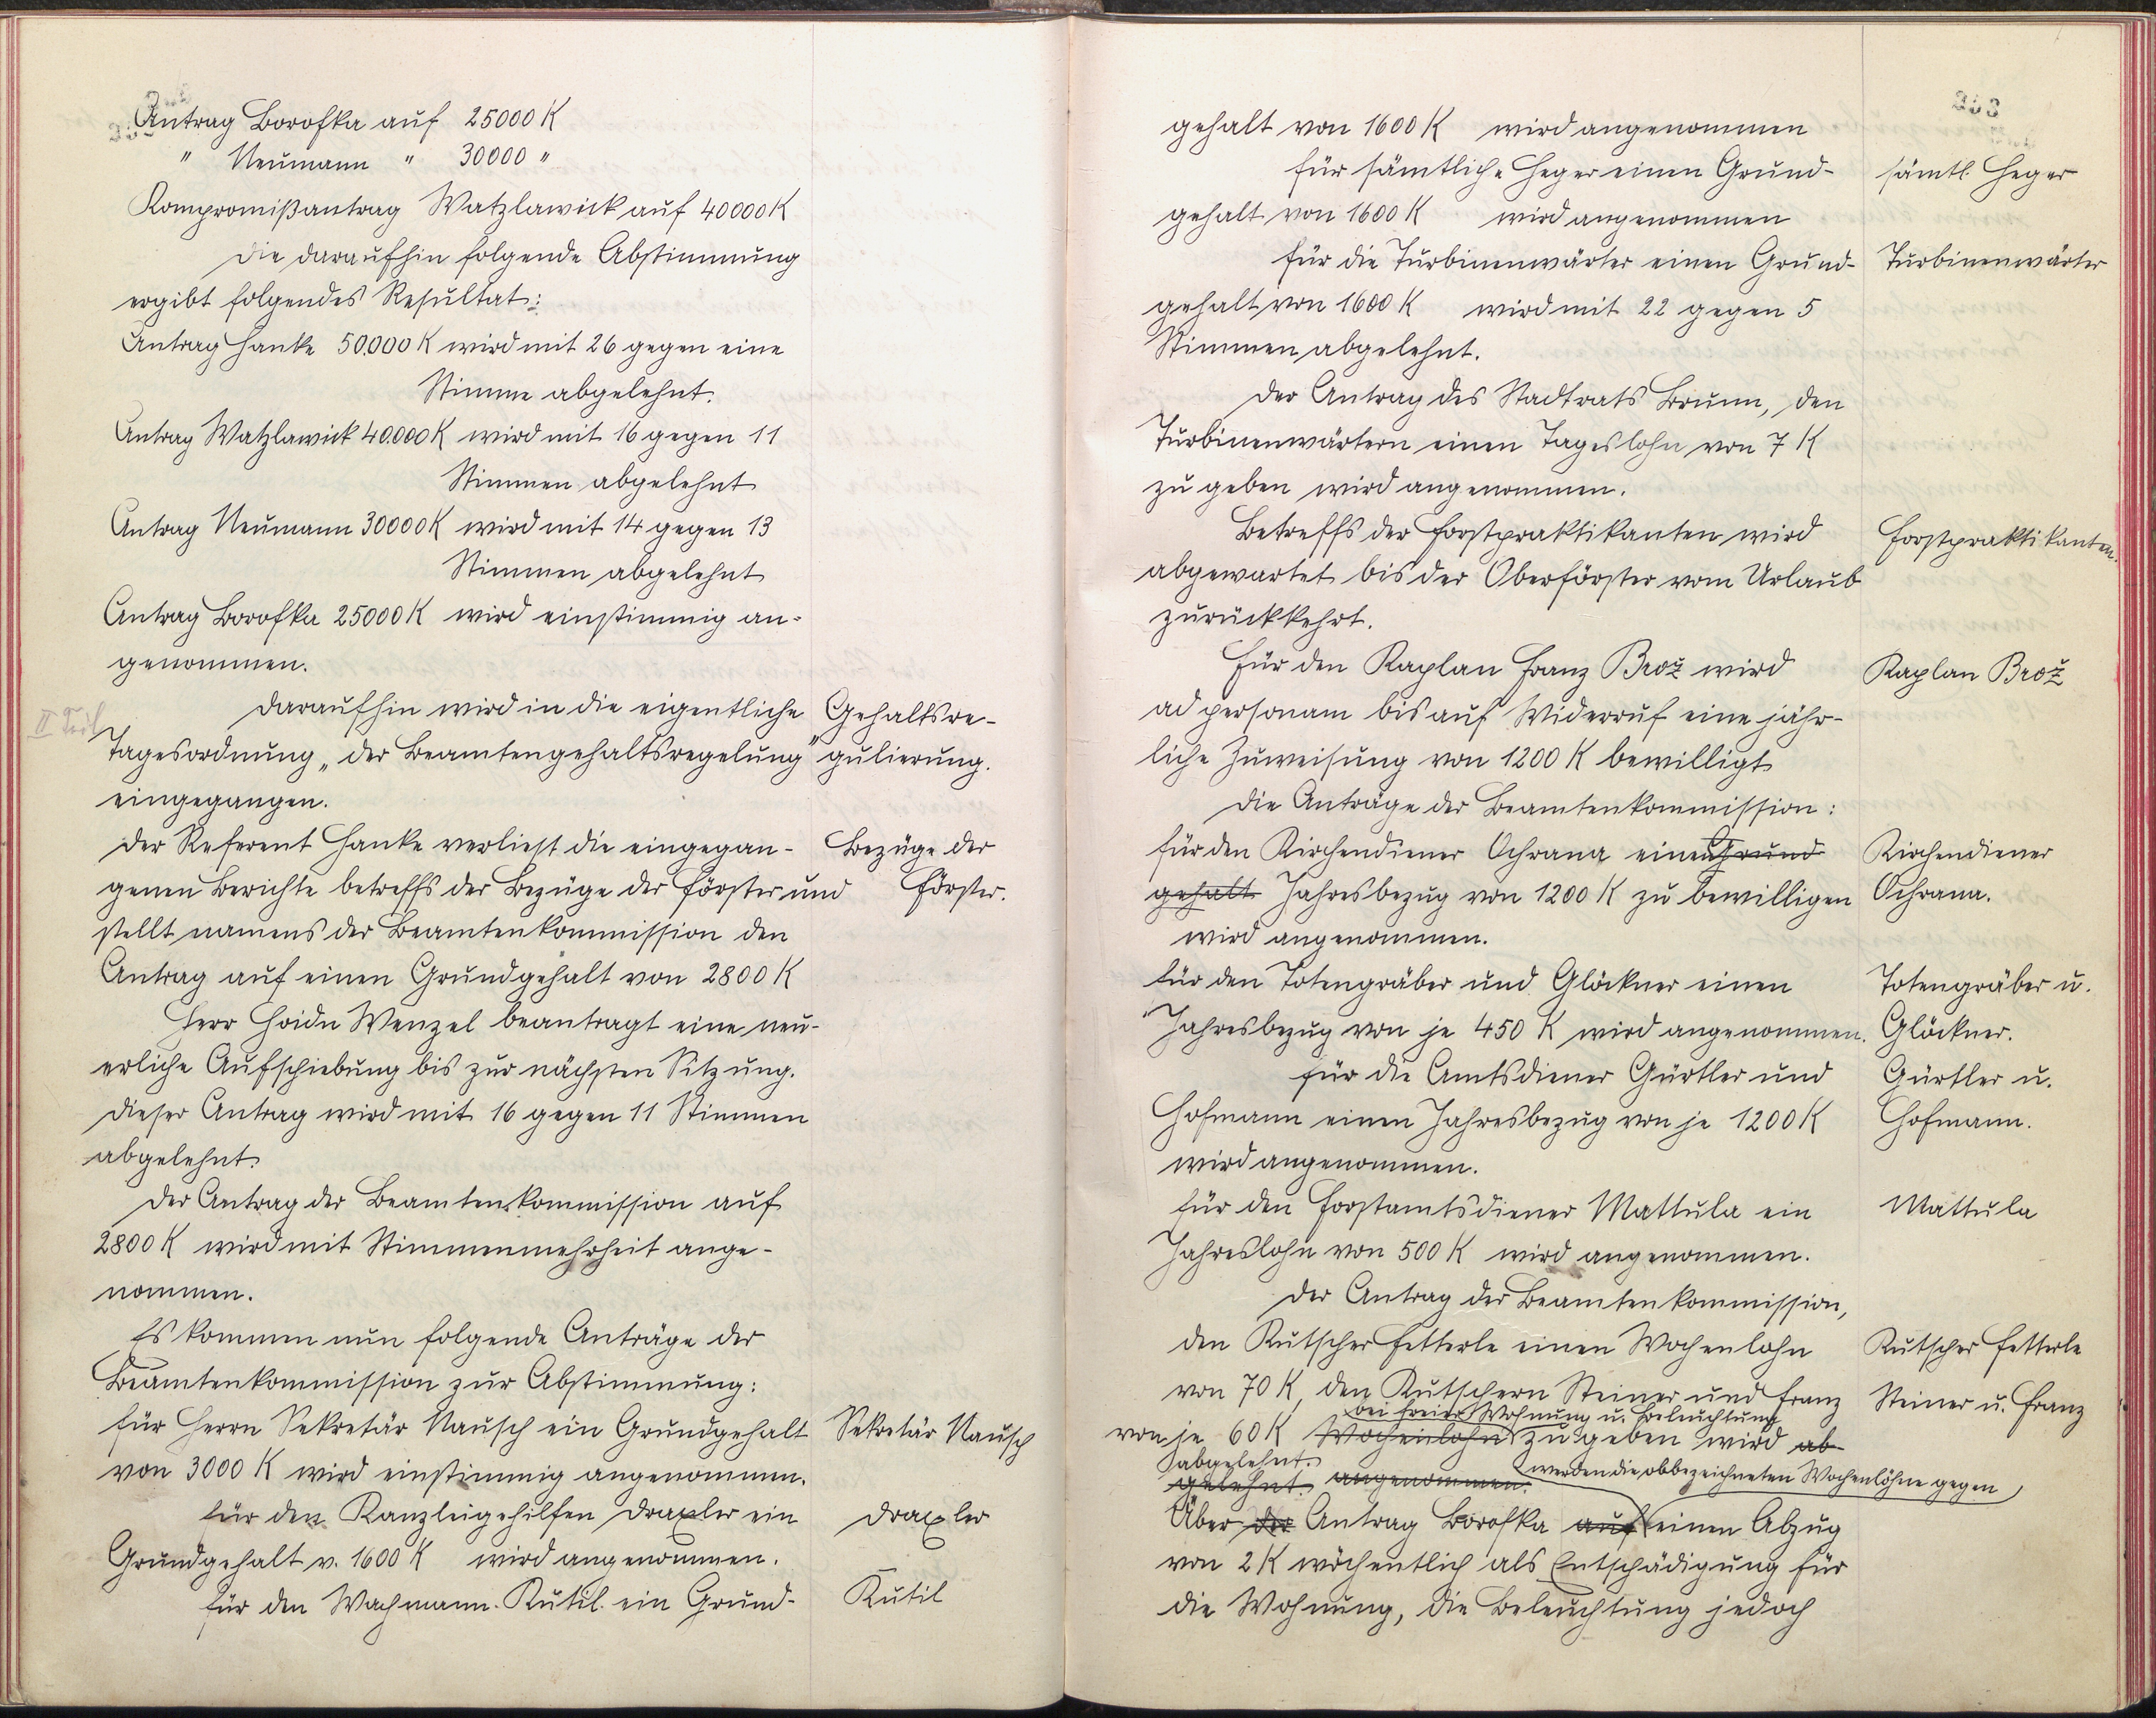 Antrag Borofka auf 25000 K
" Neumann " 30000 "
Kompromißantrag Watzlawick auf 40000 K
Die daraufhin folgende Abstimmung
ergibt folgendes Resultat:
Antrag Hanke 50.000 K wird mit 26 gegen eine
Stimme abgelehnt.
Antrag Watzlawick 40.000 K wird mit 16 gegen 11
Stimmen abgelehnt
Antrag Neumann 30000 K wird mit 14 gegen 13
Stimmen abgelehnt
Antrag Borofka 25000 K wird einstimmig an-
genommen.
II Teil
Daraufhin wird in die eigentliche
Tagesordnung „der Beamtengehaltsregelung"
eingegangen.
Gehaltsre-
gulierung.
Der Referent Hanke verliest die eingegan-
genen Berichte betreffs der Bezüge der Förster und
stellt namens der Beamtenkommission den
Antrag auf einen Grundgehalt von 2800 K
Bezüge der
Förster.
Herr Hoidn Wenzel beantragt eine neu-
erliche Aufschiebung bis zur nächsten Sitzung.
Dieser Antrag wird mit 16 gegen 11 Stimmen
abgelehnt.
Der Antrag der Beamtenkommission auf
2800 K wird mit Stimmenmehrheit ange-
nommen.
Es kommen nun folgende Anträge der
Beamtenkommission zur Abstimmung:
für Herrn Sekretär Nausch ein Grundgehalt
von 3000 K wird einstimmig angenommen.
Sekretär Nausch
für den Kanzleigehilfen Draxler ein
Grundgehalt v. 1600 K wird angenommen.
Draxler
für den Wachmann Kutil ein Grund-
Kutil
gehalt von 1600 K wird angenommen
für sämtliche Heger einen Grund-
gehalt von 1600 K wird angenommen
sämtl. Heger
für die Turbinenwärter einen Grund-
gehalt von 1600 K wird mit 22 gegen 5
Stimmen abgelehnt.
Turbinenwärter
Der Antrag des Stadtrats Brunn, den
Turbinenwärtern einen Tageslohn von 7 K
zu geben wird angenommen.
Betreffs der Forstpraktikanten wird
abgewartet bis der Oberförster vom Urlaub
zurückkehrt.
Forstpraktikanten.
Für den Kaplan Franz Brož wird
ad personam bis auf Widerruf eine jähr-
liche Zuweisung von 1200 K bewilligt
Kaplan Brož
Die Anträge der Beamtenkommission:
für den Kirchendiener Ochrana einen Grund
gehalt Jahresbezug von 1200 K zu bewilligen
wird angenommen.
Kirchendiener
Ochrana.
für den Totengräber und Glöckner einen
Jahresbezug von je 450 K wird angenommen.
Totengräber u.
Glöckner.
für die Amtsdiener Gürtler und
Hofmann einen Jahresbezug von je 1200 K
wird angenommen.
Gürtler u.
Hofmann.
für den Forstamtsdiener Mattula ein
Jahreslohn von 500 K wird angenommen.
Mattula
Der Antrag der Beamtenkommission,
den Kutscher Fetterle einen Wochenlohn
von 70 K, den Kutschern Steiner und Franz
bei freier Wohnung u. Beleuchtung
von je 60 K Wochenlohn zu geben wird ab-
abgelehnt.
gelehnt. angenommen.
Kutscher Fetterle
Steiner u. Franz
werden die obbezeichneten Wochenlöhne gegen
Über der Antrag Borofka auf einen Abzug
von 2 K wöchentlich als Entschädigung für
die Wohnung, die Beleuchtung jedoch